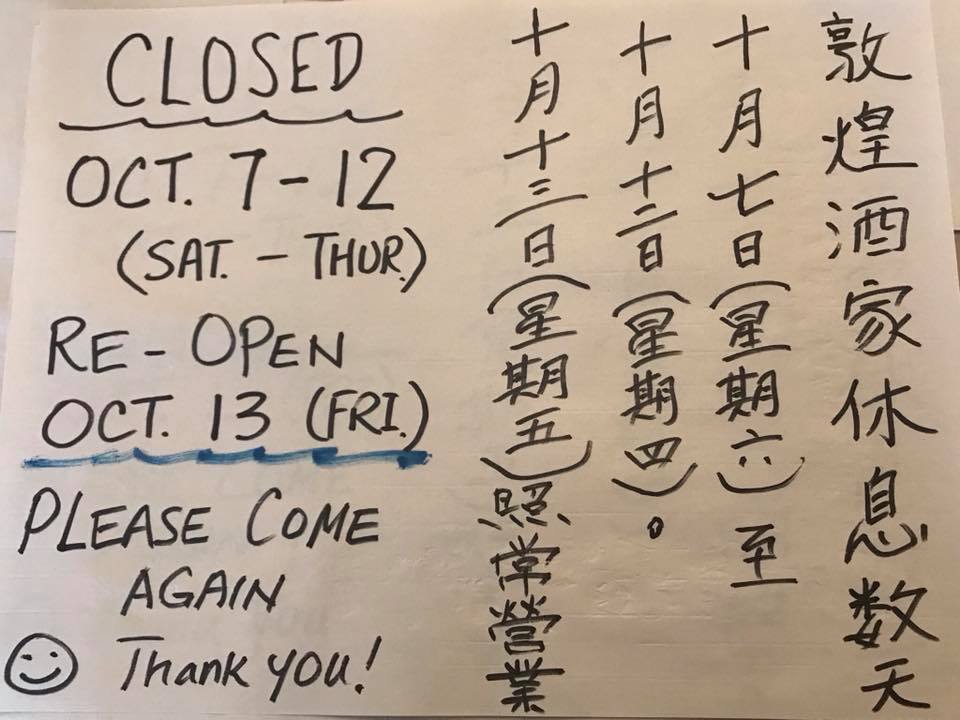 CLOSED
OCT. 7 - 12
(SAT. - THUR.)
RE - OPEN
OCT. 13 (FRI.)
PLEASE COME
AGAIN
Thank you!
敦煌酒家休息数天
十月七日(星期六)至
十月十二日(星期四)。
十月十三日(星期五)照常營業